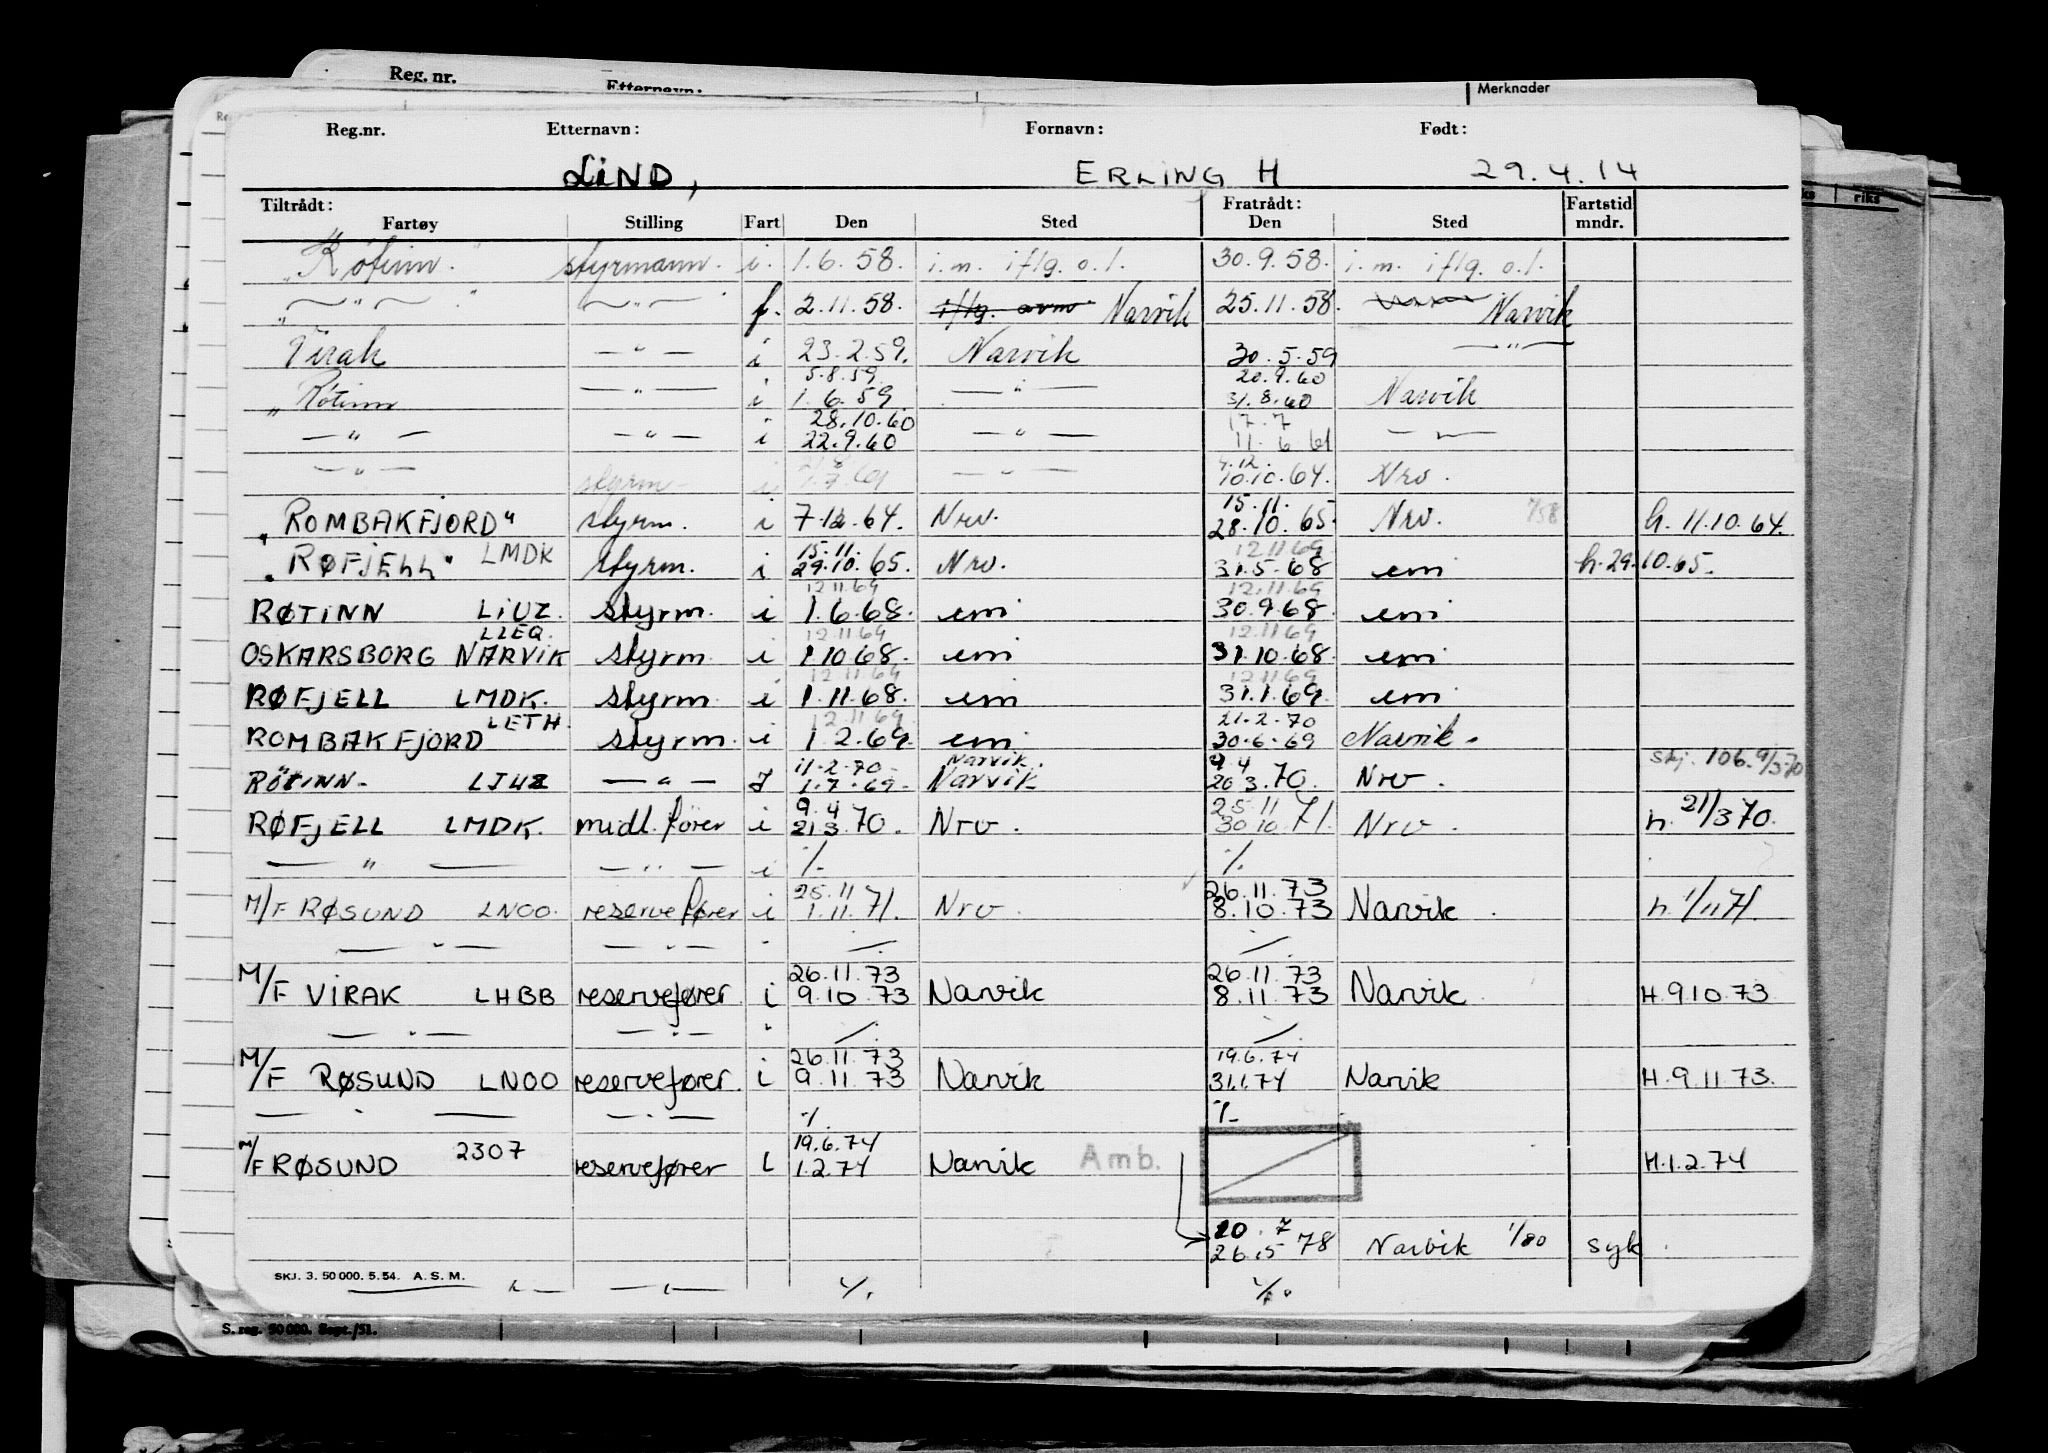 Reg. nr. Etternavn: Merknader
Reg.nr. Etternavn: Fornavn: Født:
LIND, ERLING H 29.4.14
Tiltrådt: Fratrådt: Fartstid
Fartøy Stilling Fart Den Sted Den Sted mndr. riks
"Røtinn" styrmann. i. 1.6.58. i.m. iflg. o.l. 30.9.58. i.m. iflg. o.l.
— " — — " — f. 2.11.58. Narvik 25.11.58. Narvik
Virak — " — i 23.2.59. Narvik 30.5.59 — " —
5.8.59 20.9.60
"Røtinn — " — i 1.6.59 — " — 31.8.60 Narvik
28.10.60 17.7
— " — — " — i 22.9.60 — " — 11.6.61 — " —
4.12.
— " — styrm — i — " — 10.10.64. Nrv.
15.11.
"ROMBAKFJORD" styrm. i 7.12.64. Nrv. 28.10.65 Nrv. h. 11.10.64.
15.11. 12.11.69
"RØFJELL" LMDK styrm. i 29.10.65. Nrv. 31.5.68 emi h. 29.10.65.
12.11.69 12.11.69
RØTINN LIUZ. styrm. i 1.6.68. emi 30.9.68. emi
LLEQ. 12.11.69 12.11.69
OSKARSBORG NARVIK styrm. i 1.10.68. emi 31.10.68. emi
12.11.69 12.11.69
RØFJELL LMDK. styrm. i 1.11.68. emi 31.1.69. emi
LETH. 12.11.69 21.2.70
ROMBAKFJORD styrm. i 1.2.69. emi 30.6.69 Narvik.
11.2.70 Narvik. 9.4 skj. 106. 9/3 70
RÖTINN- LIUZ — " — I 1.7.69. Narvik 20.3.70. Nrv.
9.4 25.11
RØFJELL LMDK. midl. fører i 21.3.70. Nrv. 30.10.71. Nrv. h. 21/3 70.
— " — — " — i ./. ./.
25.11 26.11.73
M/F RØSUND LNOO. reservefører i 1.11.71. Nrv. 8.10.73 Narvik. h. 1/11 71.
— " — — " — " ./. ./.
26.11.73 26.11.73
M/F VIRAK LHBB reservefører i 9.10.73 Narvik 8.11.73 Narvik. H.9.10.73
— " — — " — " ./. ./.
26.11.73 19.6.74
M/F RØSUND LNOO reservefører. i 9.11.73 Narvik 31.1.74 Narvik H.9.11.73.
— " — — " — ./. ./.
19.6.74
M/F RØSUND 2307 reservefører i 1.2.74 Narvik Amb. H.1.2.74
20.7
26.5 78 Narvik 1/80 syk.
SKJ. 3. 50 000. 5. 54. A. S. M. — " — — " — ./. ./.
S. reg. 50 000. Sept./51.